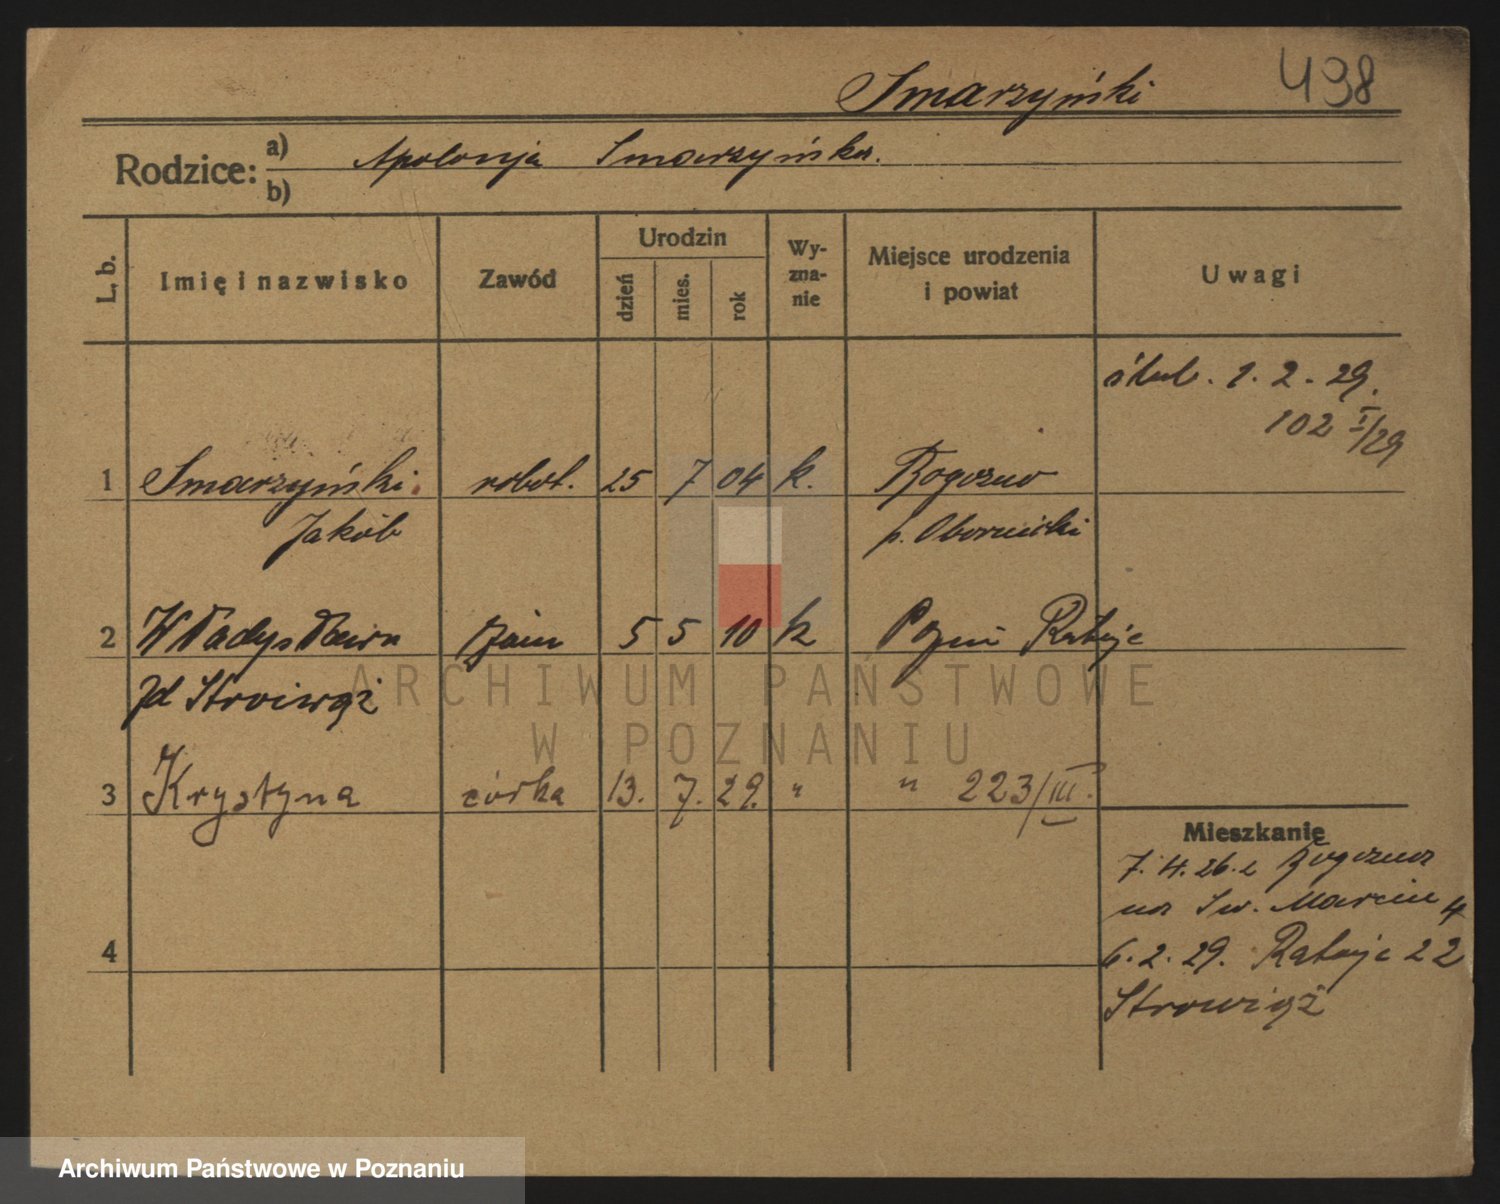 Smarzyński 498
Rodzice: a) Apolonja Smarzyńska.
b)
L. b. Imię i nazwisko Zawód Urodzin dzień mies. rok Wy-zna-nie Miejsce urodzenia i powiat Uwagi
ślub. 1. 2. 29.
102 I/29
1 Smarzyński robot. 25 7 04 k. Rogoźno
Jakób p. Obornicki
2 Władysława 5 5 10 k Pozn Rataje
zd Stroiwąż
3 Krystyna córka 13. 7. 29. " " 223/III.
Mieszkanie
7. 4. 26. z Rogoźna
na Św. Marcin 4
6. 2. 29. Rataje 22
Strowiąż
4
ARCHIWUM PAŃSTWOWE
W POZNANIU
Archiwum Państwowe w Poznaniu